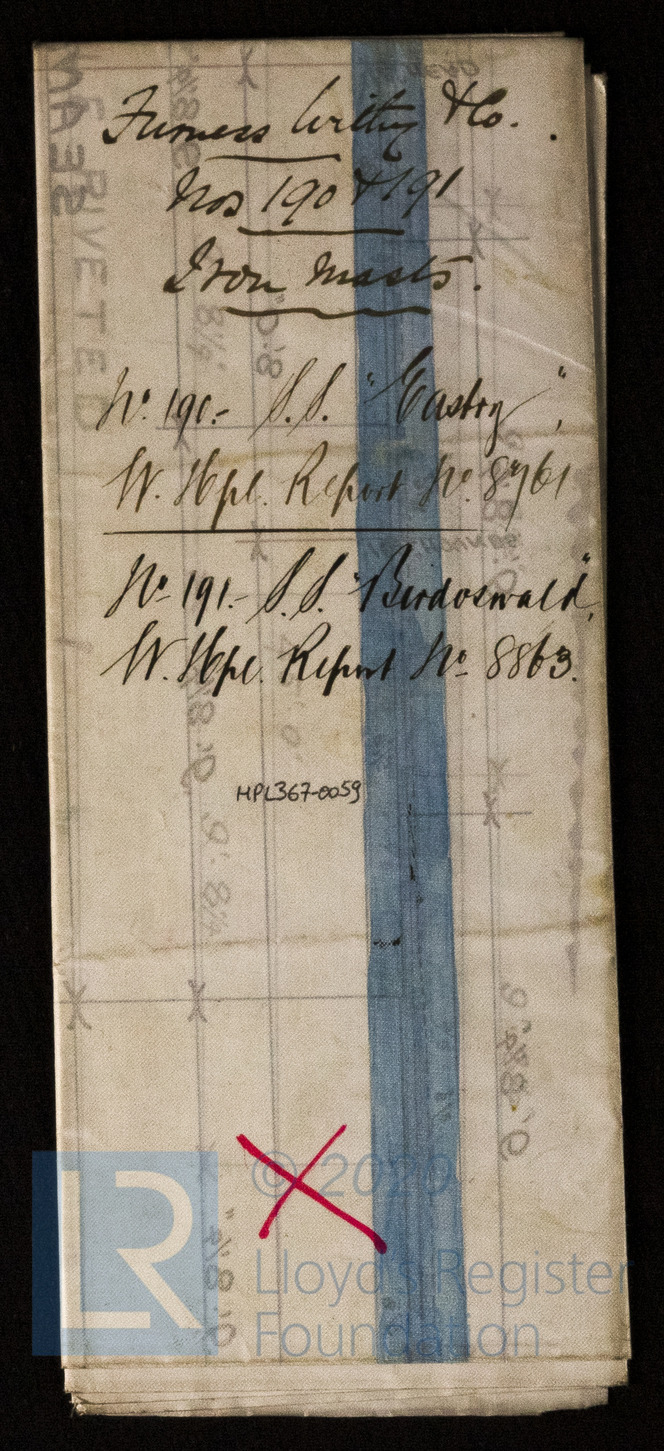 Furness Withy & Co.
Nos 190 & 191
Iron Masts.
No. 190.- S.S. "Eastry",
W. Hpl. Report No. 8761
No 191.- S.S. "Birdoswald",
W. Hpl. Report No 8863.
HPL367-0059
RIVETED
LR
© 2020
Lloyd's Register
Foundation